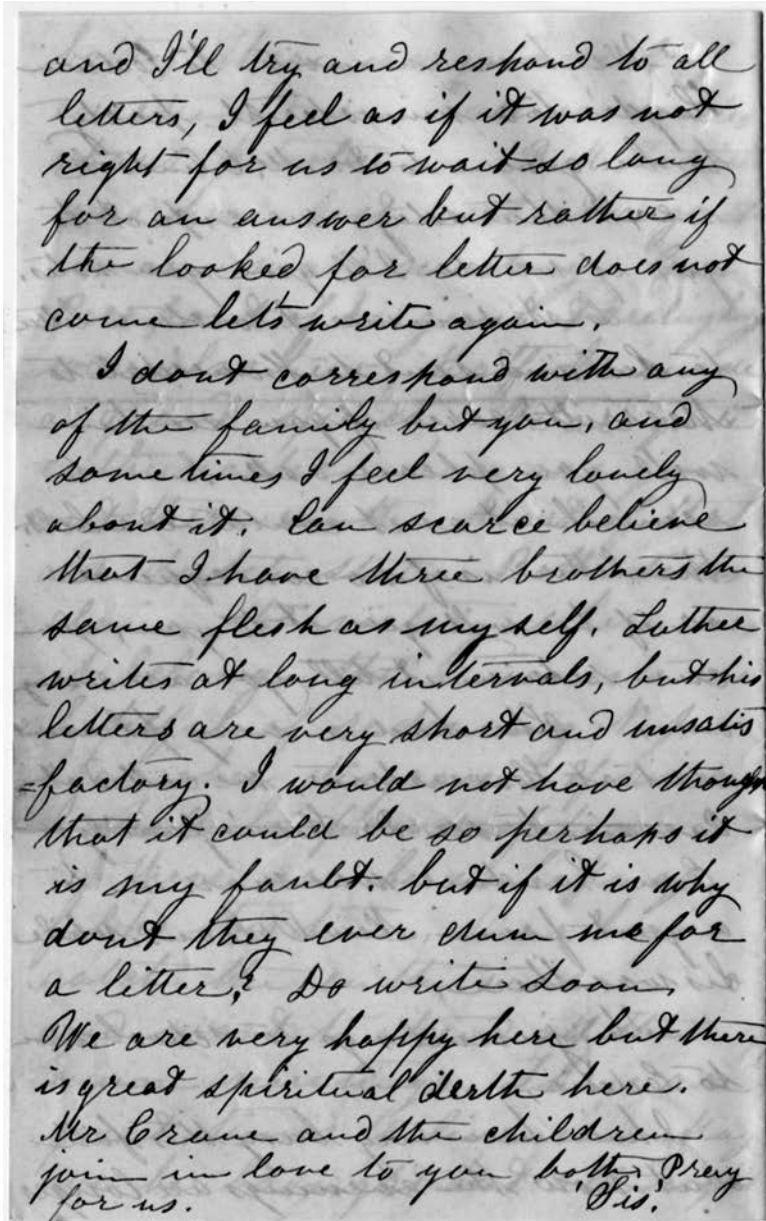 and I'll try and respond to all
letters, I feel as if it was not
right for us to wait so long
for an answer but rather if
the looked for letter does not
come let's write again.
I dont correspond with any
of the family but you, and
sometimes I feel very lonely
about it. Can scarce believe
that I have three brothers the
same flesh as myself. Luther
writes at long intervals, but his
letters are very short and unsatis
=factory. I would not have though
that it could be so perhaps it
is my fault. but if it is why
dont they ever dun me for
a litter? Do write soon
We are very happy here but there
is great spiritual derth here.
Mr Crane and the children
join in love to you both. Pray
for us. 'Sis'.